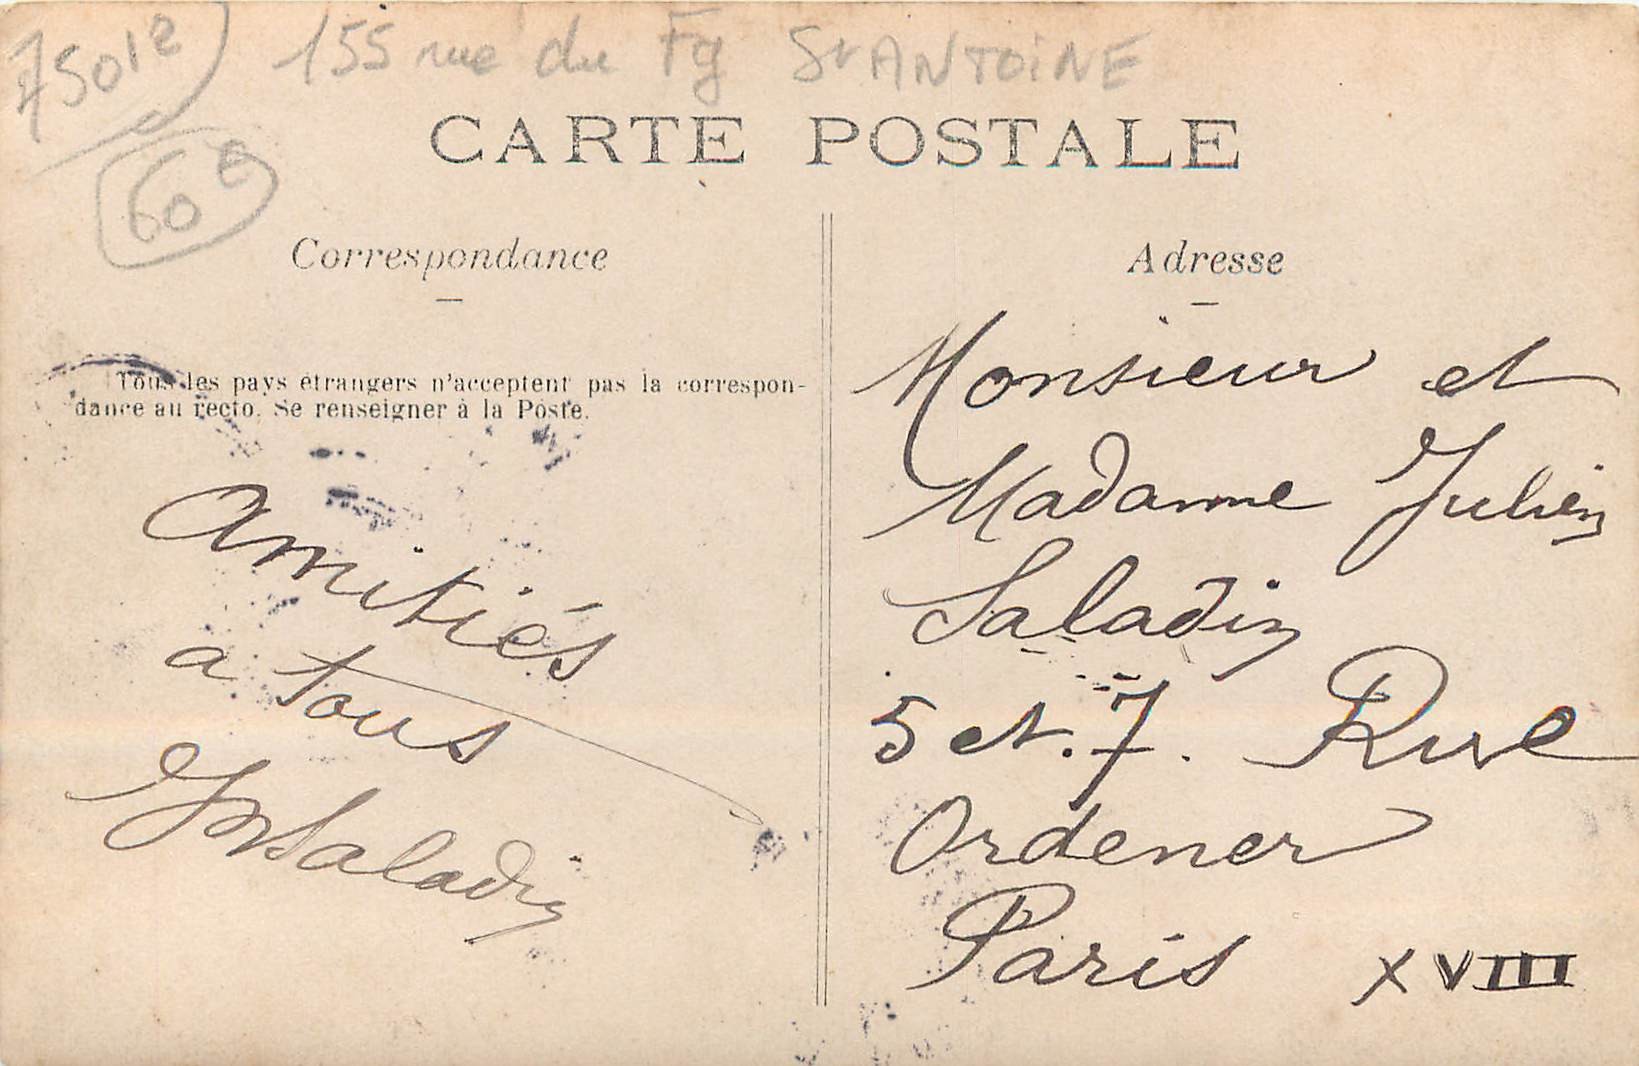 75012
155 rue du Fg St ANTOINE
60 €
CARTE POSTALE
Correspondance
Tous les pays étrangers n'acceptent pas la correspon-
dance au recto. Se renseigner à la Poste.
Amitiés
a tous
Saladin
Adresse
Monsieur et
Madame Julien
Saladin
5 et. 7. Rue
Ordener
Paris XVIII